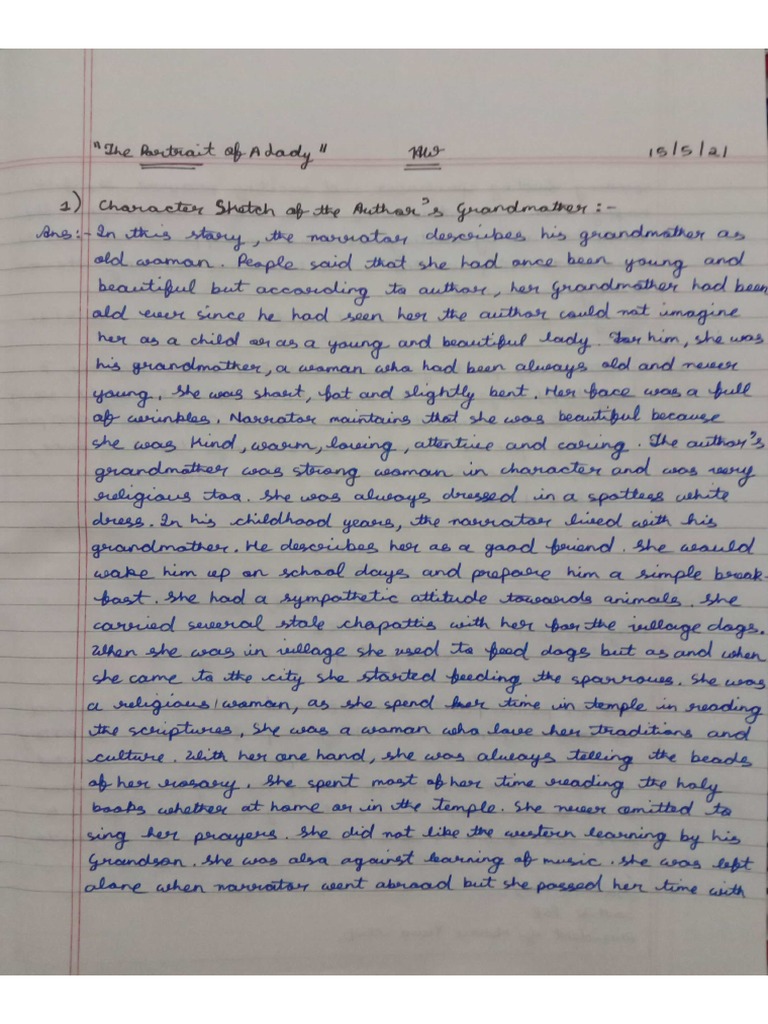 "The Portrait of A Lady" HW 15/5/21
1) Character Sketch of the Author's Grandmother:-
Ans:- In this story, the narrator describes his grandmother as
old woman. People said that she had once been young and
beautiful but according to author, her Grandmother had been
old ever since he had seen her the author could not imagine
her as a child or as a young and beautiful lady. For him, she was
his grandmother, a woman who had been always old and never
young. She was short, fat and slightly bent. Her face was a full
of wrinkles. Narrator maintains that she was beautiful because
she was kind, warm, loving, attentive and caring. The author's
grandmother was strong woman in character and was very
religious too. She was always dressed in a spotless white
dress. In his childhood years, the narrator lived with his
grandmother. He describes her as a good friend. She would
wake him up on school days and prepare him a simple break-
fast. She had a sympathetic attitude towards animals. She
carried several stale chapattis with her for the village dogs.
When she was in village she used to feed dogs but as and when
she came to the city she started feeding the sparrows. She was
a religious woman, as she spend her time in temple in reading
the scriptures, She was a woman who love her traditions and
culture. With her one hand, she was always telling the beads
of her rosary. She spent most of her time reading the holy
books whether at home or in the temple. She never omitted to
sing her prayers. She did not like the western learning by his
Grandson. She was also against learning of music. She was left
alone when narrator went abroad but she passed her time with